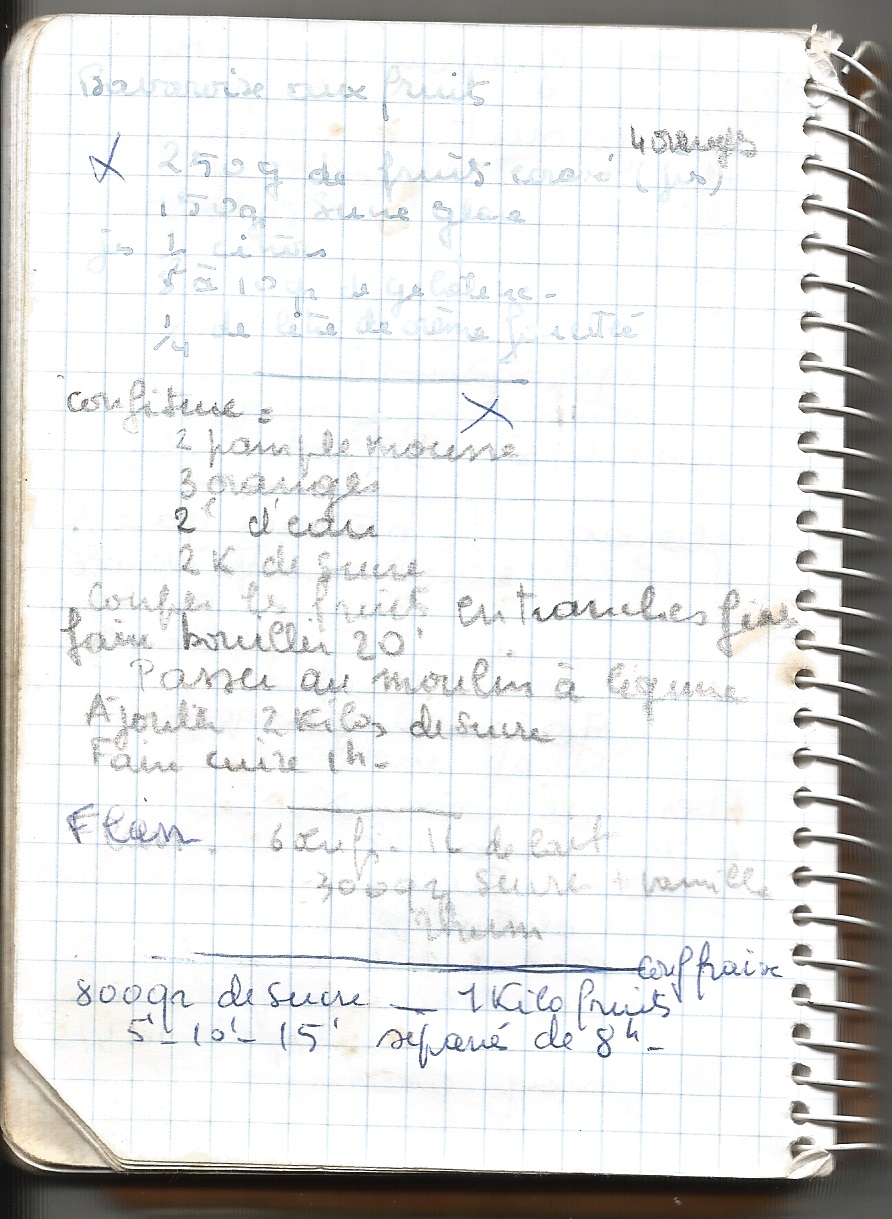 Bavaroise aux fruits
4 oranges
X 250g de fruits écrasé (jus)
150g sucre glace
jus 1/2 citron
8 à 10 gr de gélatine -
1/4 de litre de crème fouetté
confiture = X "
2 pamplemousse
3 oranges
2l d'eau
2 K de sucre
Couper les fruits en tranches fines
faire bouillir 20'
Passer au moulin à légume
Ajouter 2 Kilos de sucre
Faire cuire 1h -
Flan 6 œufs - 1L de lait
300gr sucre + vanille
rhum
conf fraise
800gr de sucre — 1 Kilo fruits
5' - 10' - 15' séparé de 8h -